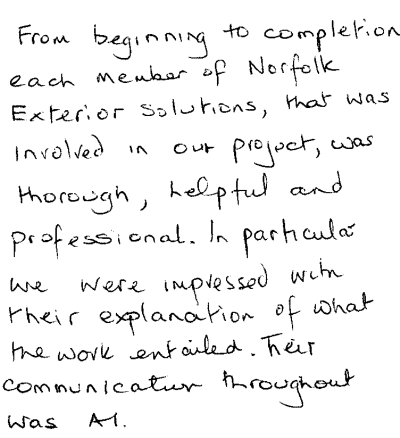 From beginning to completion
each member of Norfolk
Exterior Solutions, that was
involved in our project, was
thorough, helpful and
professional. In particular
we were impressed with
their explanation of what
the work entailed. Their
communication throughout
was A1.